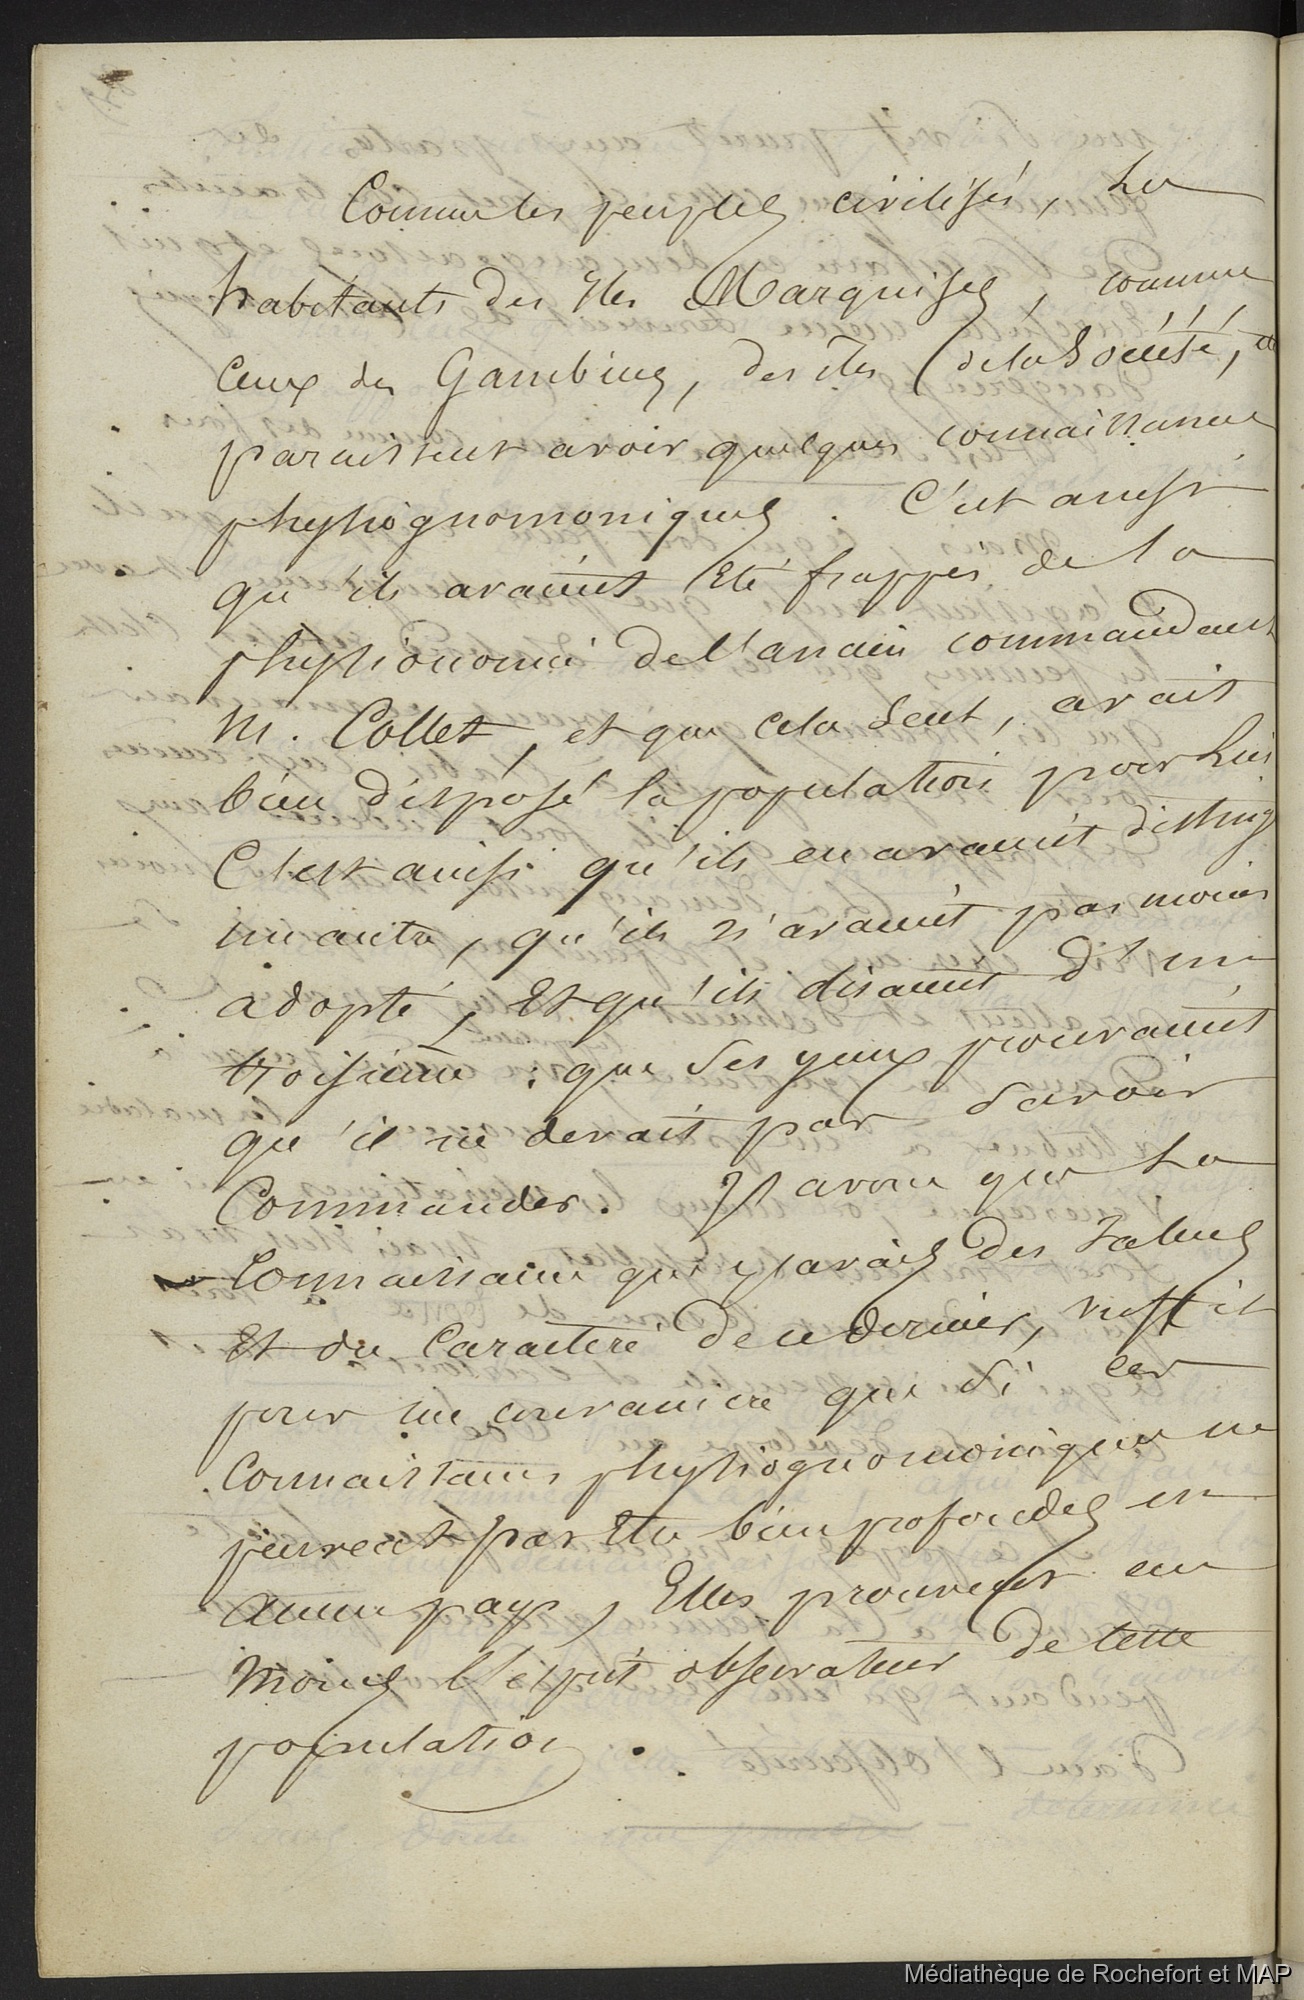 Comme les peuples civilisés, les
habitants des îles Marquises, comme
ceux des Gambiers, des îles de la Société, &
paraissent avoir quelques connaissances
physiognomoniques. C'est ainsi
qu'ils avaient été frappés de la
physionomie de l'ancien commandant
M. Collet, et que cela seul, avait
bien disposé la population pour lui
C'est ainsi qu'ils en avaient disting
un autre, qu'ils n'avaient pas moins
adopté, et qu'ils disaient d'un
troisième : que ses yeux prouvaient
qu'il ne devait pas savoir
Commander. J'avoue que la
Connaissance que j'avais des talens
et du Caractère de ce dernier, suffit
pour me convaincre que si ces
Connaissances physiognomoniques ne
peuvent pas être bien profondes en
aucun pays, Elles prouvent au
moins l'esprit observateur de cette
population.
Médiathèque de Rochefort et MAP